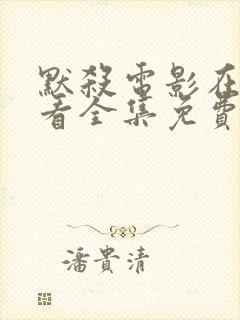 默殺電影在
看全集免費
潘貴清